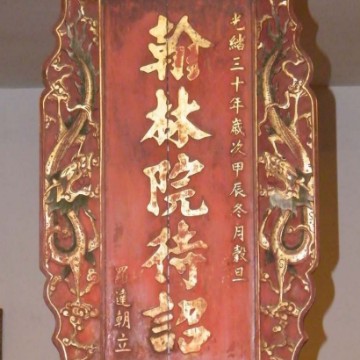 光緒三十年歲次甲辰冬月穀旦
翰林院待詔
達朝立